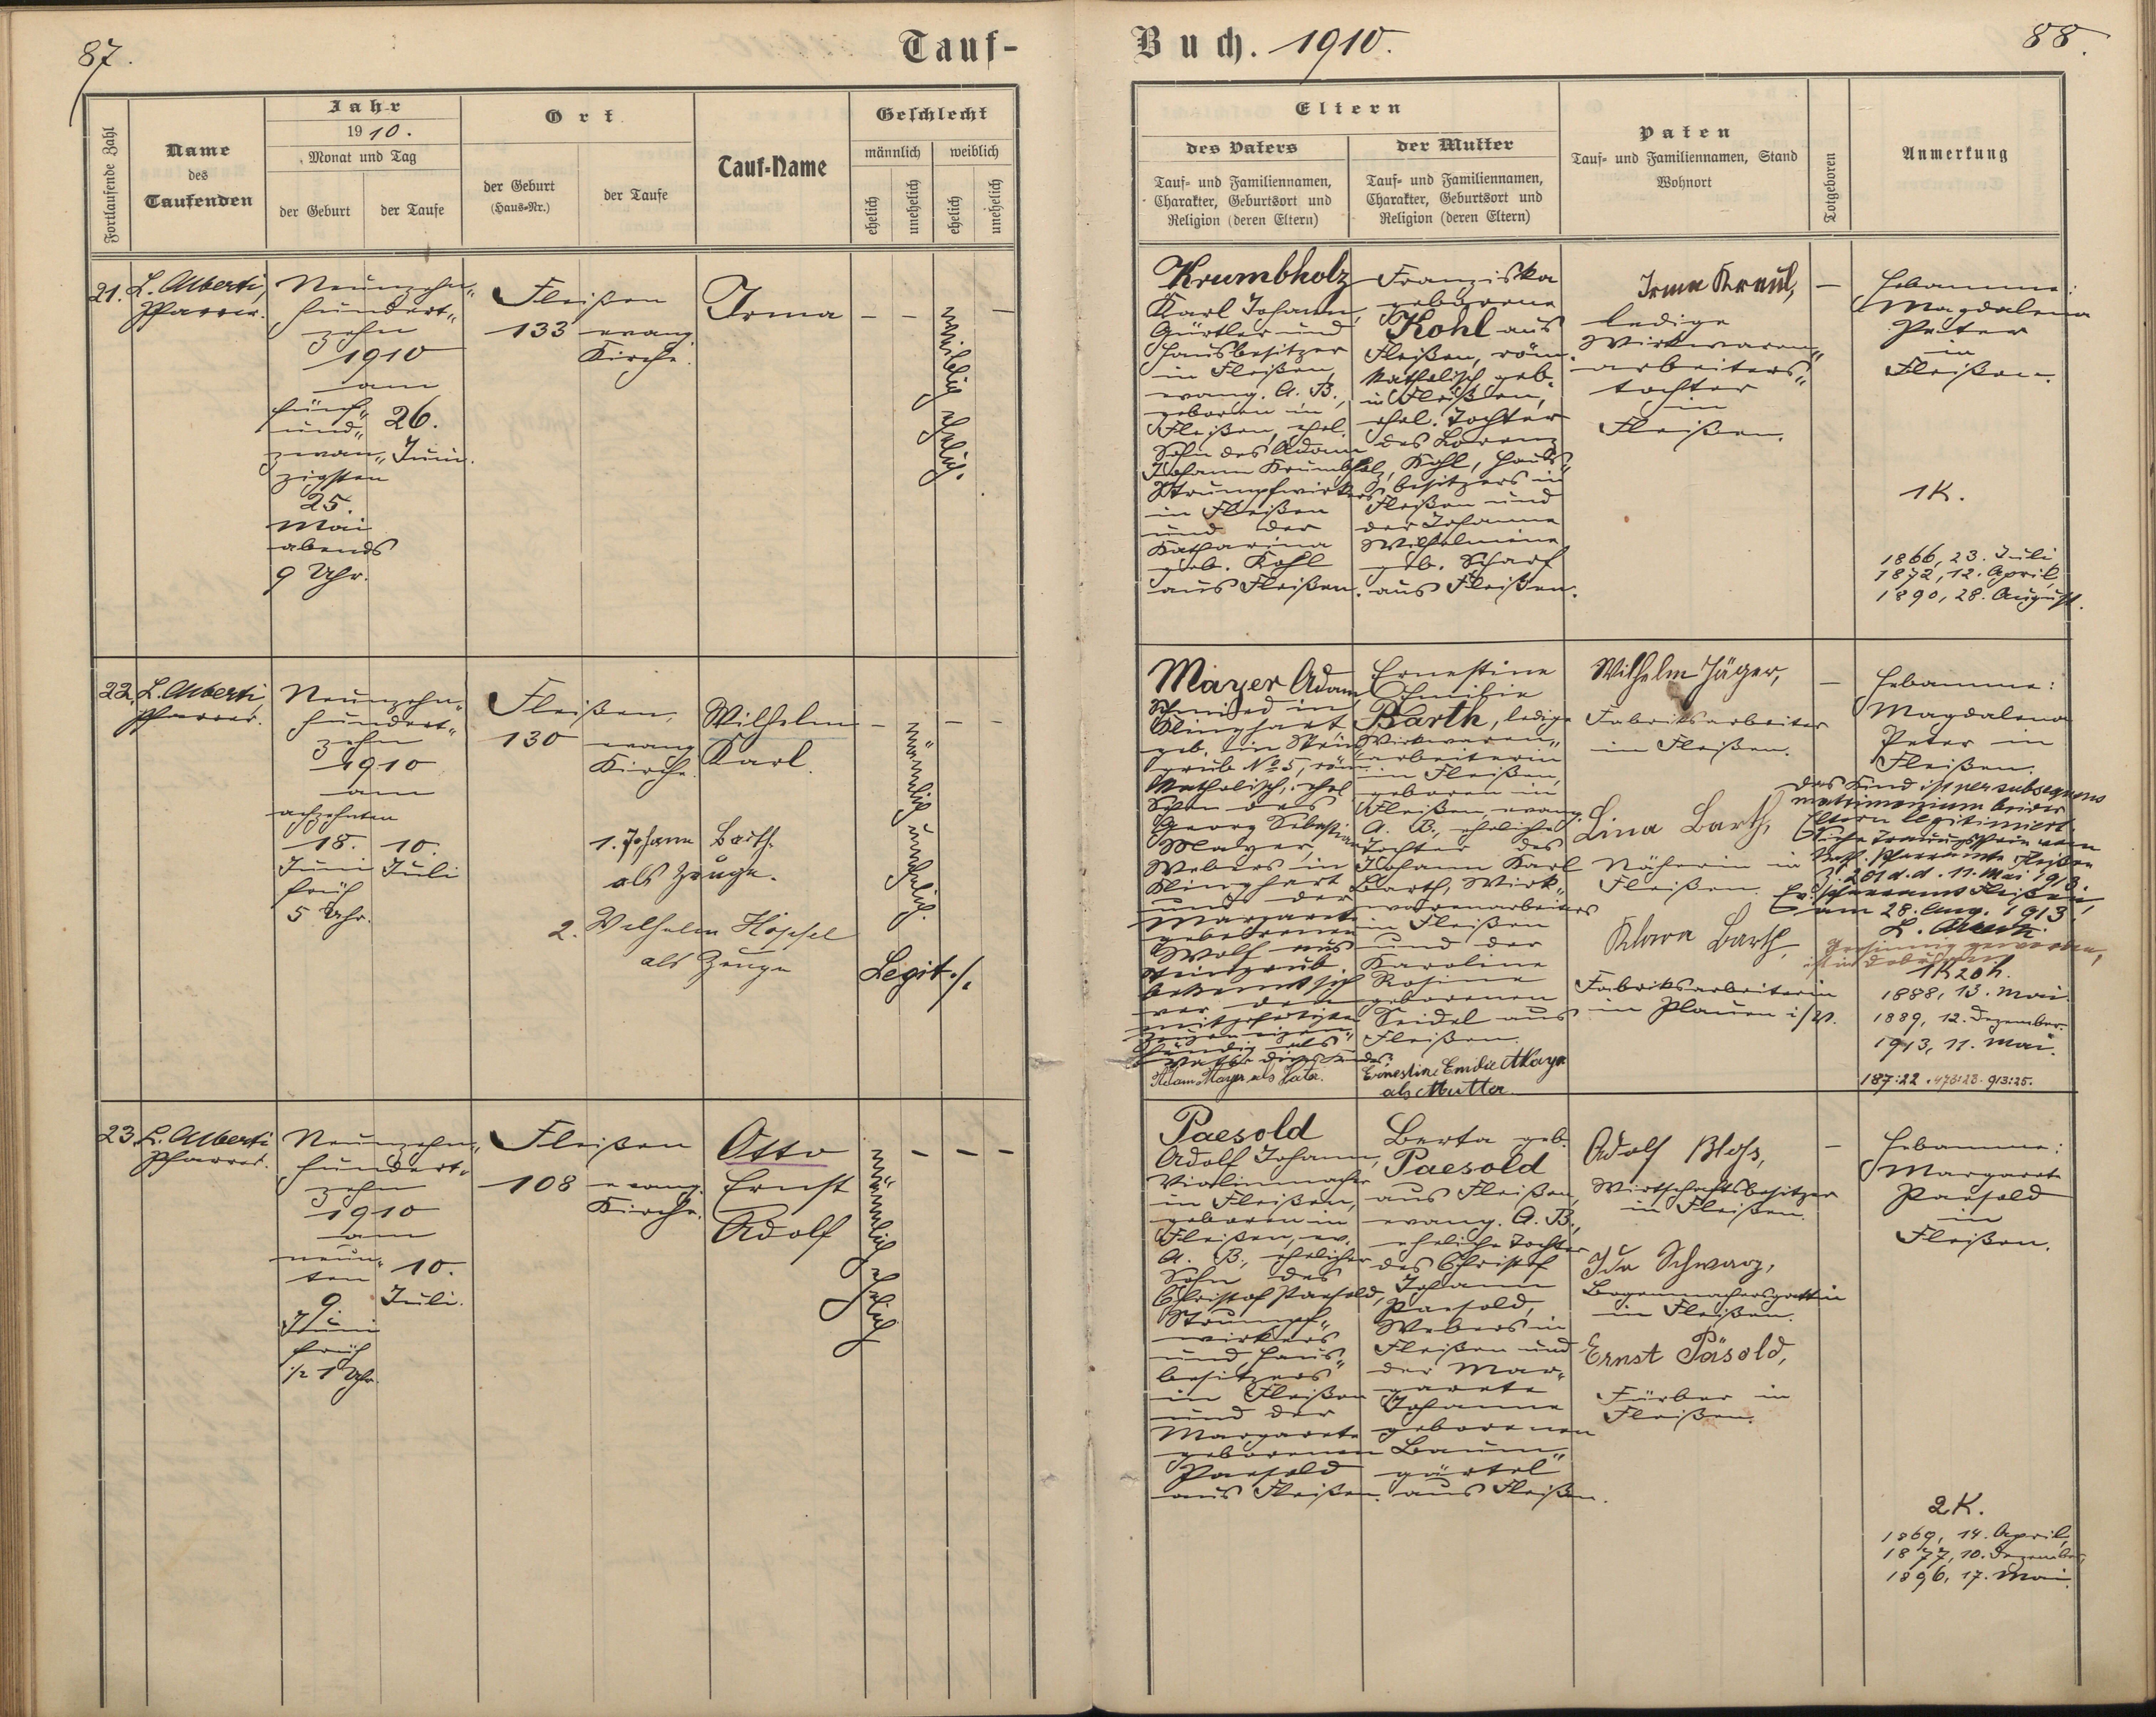 87.
Tauf-
Fortlaufende Zahl
Name
des
Taufenden
Jahr
1910.
Monat und Tag
der Geburt
der Taufe
Ort
der Geburt
(Haus-Nr.)
der Taufe
Tauf-Name
Geschlecht
männlich
weiblich
ehelich
unehelich
ehelich
unehelich
21.
L. Alberti,
Pfarrer.
Neunzehn„
hundert„
zehn
1910
am
fünf„
und„
zwan„
zigsten
25.
Mai
abends
9 Uhr.
26.
Juni.
Fleißen
133
evang.
Kirche.
Irma
–
–
weiblich ehelich.
–
22.
L. Alberti
Pfarrer.
Neunzehn„
hundert„
zehn
1910
am
achzehnten
18.
Juni
früh
5 Uhr.
10.
Juli
Fleißen,
130
evang.
Kirche.
Wilhelm
Karl.
–
männlich unehelich.
–
–
1. Johann Barth
als Zeuge.
2. Wilhelm Höpfel
als Zeuge
Legit./.
23.
L. Alberti
Pfarrer.
Neunzehn„
hundert„
zehn
1910
am
neun„
ten
9.
Juni
früh
½ 1 Uhr.
10.
Juli.
Fleißen
108
evang.
Kirche.
Otto
Ernst
Adolf
männlich ehelich
–
–
–
Buch. 1910.
88.
Eltern
des Vaters
Tauf- und Familiennamen,
Charakter, Geburtsort und
Religion (deren Eltern)
der Mutter
Tauf- und Familiennamen,
Charakter, Geburtsort und
Religion (deren Eltern)
Paten
Tauf- und Familiennamen, Stand
Wohnort
Totgeboren
Anmerkung
Krumbholz
Karl Johann,
Gürtler und
Hausbesitzer
in Fleißen,
evang. A. B.,
geboren in
Fleißen, ehel.
Sohn des Adam
Johann Krumbholz,
Strumpfwirkers
in Fleißen
und der
Katharina
geb. Kohl
aus Fleißen.
Franziska
geborene
Kohl aus
Fleißen, röm.
katholisch, geb.
in Fleißen,
ehel. Tochter
des Lorenz
Kohl, Haus„
besitzers in
Fleißen und
der Johanna
Wilhelmine
geb. Scharf
aus Fleißen.
Irma Kraul,
ledige
Wirkwaren„
arbeiters„
tochter
in
Fleißen.
–
Hebamme:
Magdalena
Peter
in
Fleißen.
1K.
1866, 23. Juli
1872, 12. April,
1890, 28. August.
Mayer Adam
Schmied in
Klinghart
geb. in Stein„
grub No 5, röm.
katholisch, ehel.
Sohn des
Georg Sebastian
Mayer,
Webers in
Klinghart
und der
Margareta
geborenen
Wolf aus
Steingrub.
bekennt sich
vor den
mitgefertigten
Zeugen eigen„
händig als
Vater dieses Kindes.
Adam Mayer als Vater.
Ernestine
Emilie
Barth, ledige
Wirkwaren„
arbeiterin
in Fleißen,
geboren in
Fleißen, evang.
A. B., eheliche
Tochter des
Johann Karl
Barth, Wirk„
warenarbeiters
in Fleißen
und der
Karoline
Rosine
geborenen
Seidel aus
Fleißen.
Ernestine Emilie Mayer
als Mutter.
Wilhelm Jäger,
Fabriksarbeiter
in Fleißen.
Lina Barth,
Näherin in
Fleißen.
Klara Barth,
Fabriksarbeiterin
in Plauen i/V.
–
Hebamme:
Magdalena
Peter in
Fleißen.
Das Kind ist per subsequens
matrimonium beider
Eltern legitimiert.
Siehe Trauungsschein vom
kath. Pfarramte Fleißen
Z. 201 d. d. 11. Mai 1913.
Ev. Pfarramt Fleißen,
am 28. Aug. 1913.
L. Alberti
1K 20h.
1888, 13. Mai.
1889, 12. Dezember.
1913, 11. Mai.
187:22. 473:23. 913:25.
Paesold
Adolf Johann,
Violinmacher
in Fleißen,
geboren in
Fleißen, ev.
A. B., ehelicher
Sohn des
Christof Paesold,
Strumpf„
wirkers
und Haus„
besitzers
in Fleißen
und der
Margareta
geborenen
Paesold
aus Fleißen.
Berta geb.
Paesold
aus Fleißen,
evang. A. B.,
eheliche Tochter
des Christof
Johann
Paesold,
Webers in
Fleißen und
der Mar„
gareta
Johanna
geborenen
Baum„
gärtel
aus Fleißen.
Adolf Bloß,
Wirtschaftsbesitzer
in Fleißen.
Ida Schwarz,
Bogenmachersgattin
in Fleißen.
Ernst Päsold,
Färber in
Fleißen.
–
Hebamme:
Margareta
Paesold
in
Fleißen.
2K.
1869, 14. April,
1877, 10. Dezember,
1896, 17. Mai.